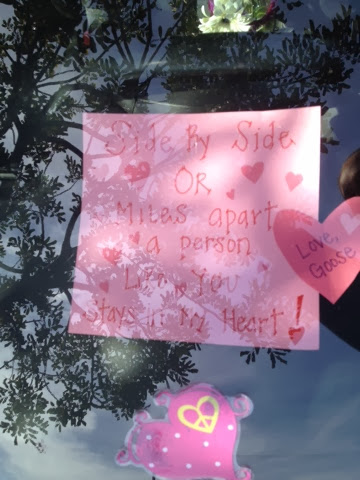 Side By Side
OR
Miles apart
a person
Like You
Stays in My Heart!
Love,
Goose